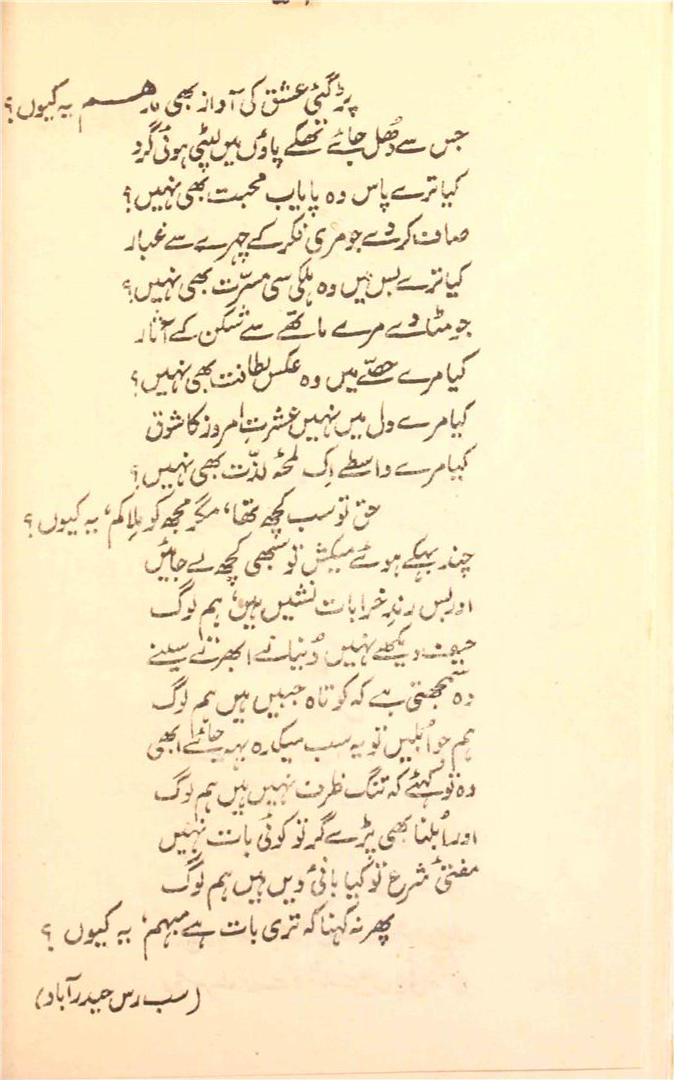 پڑ گئی عشق کی آواز بھی مدھم یہ کیوں؟
جس سے دُھل جائے تھکے پاؤں میں لپٹی ہوئی گرد
کیا ترے پاس وہ پایاب محبت بھی نہیں؟
صاف کر دے جو مری فکر کے چہرے سے غبار
کیا ترے بس میں وہ ہلکی سی مسرّت بھی نہیں؟
جو مٹا دے مرے ماتھے سے شکن کے آثار
کیا مرے حصّے میں وہ عکسِ لطافت بھی نہیں؟
کیا مرے دل میں نہیں عشرتِ امروز کا شوق
کیا مرے واسطے اِک لمحۂ لذّت بھی نہیں؟
حق تو سب کچھ تھا، مگر مجھ کو مِلا کم، یہ کیوں؟
چند بہکے ہوئے میکش تو سبھی کچھ لے جائیں
اور بس رندِ خرابات نشیں ہیں، ہم لوگ
حیف دیکھے نہیں دُنیا نے ابھرتے سینے
وہ سمجھتی ہے کہ کوتاہ جبیں ہیں ہم لوگ
ہم جو اُبلیں تو یہ سب میکدہ بہہ جائے ابھی
وہ تو کہئے کہ تنگ ظرف نہیں ہیں ہم لوگ
اور اُبلنا بھی پڑے گر تو کوئی بات نہیں
مفتئ شرع تو کیا بانئ دیں ہیں ہم لوگ
پھر نہ کہنا کہ تری بات ہے مبہم، یہ کیوں؟
(سب رس حیدرآباد)